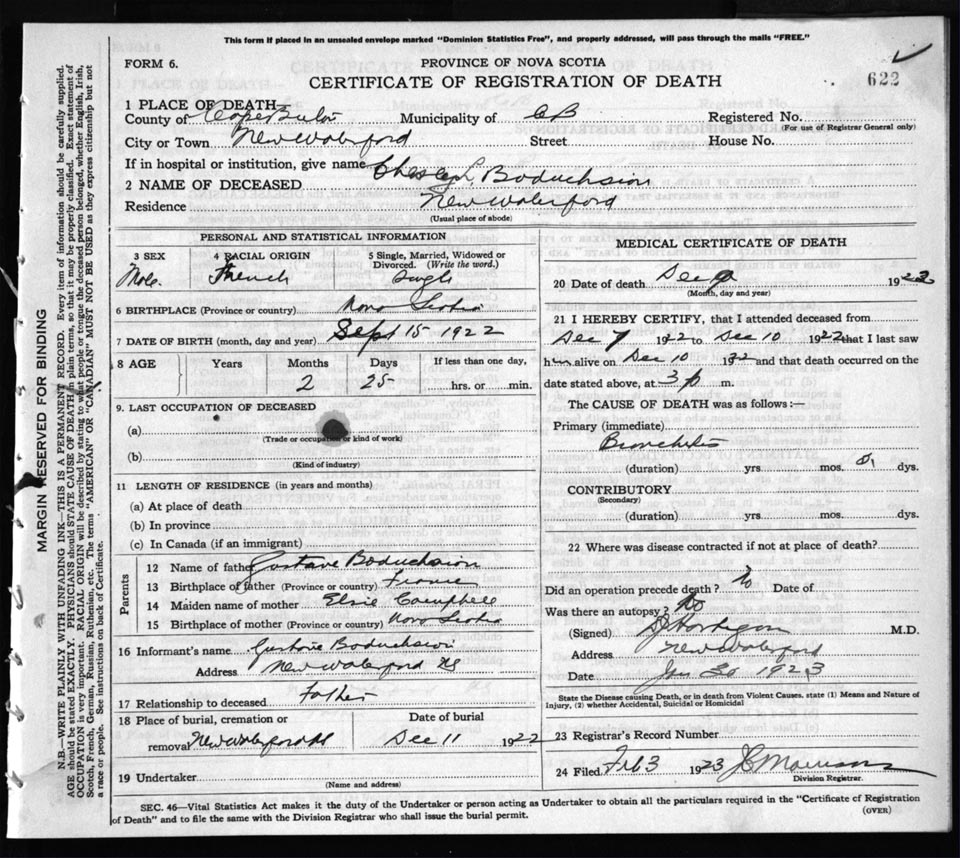 This form if placed in an unsealed envelope marked "Dominion Statistics Free", and properly addressed, will pass through the mails "FREE."
FORM 6.
PROVINCE OF NOVA SCOTIA
CERTIFICATE OF REGISTRATION OF DEATH
622
1 PLACE OF DEATH—
County of Cape Breton Municipality of CB Registered No.
(For use of Registrar General only)
City or Town New Waterford Street House No.
If in hospital or institution, give name
2 NAME OF DECEASED Boduchsion
Residence New Waterford
(Usual place of abode)
PERSONAL AND STATISTICAL INFORMATION
3 SEX 4 RACIAL ORIGIN 5 Single, Married, Widowed or Divorced. (Write the word.)
Male. French Single
6 BIRTHPLACE (Province or country) Nova Scotia
7 DATE OF BIRTH (month, day and year) Sept 15 1922
8 AGE Years Months Days If less than one day,
2 25 hrs. or min.
9. LAST OCCUPATION OF DECEASED
(a)
(Trade or occupation or kind of work)
(b)
(Kind of industry)
11 LENGTH OF RESIDENCE (in years and months)
(a) At place of death
(b) In province
(c) In Canada (if an immigrant)
Parents
12 Name of father Gustave Boduchsion
13 Birthplace of father (Province or country) France
14 Maiden name of mother Elsie Campbell
15 Birthplace of mother (Province or country) Nova Scotia
16 Informant's name Gustave Boduchsion
Address New Waterford NS
17 Relationship to deceased Father
18 Place of burial, cremation or Date of burial
removal New Waterford NS Dec 11 1922
19 Undertaker
(Name and address)
MEDICAL CERTIFICATE OF DEATH
20 Date of death 19
(Month, day and year)
21 I HEREBY CERTIFY, that I attended deceased from
Dec 7 1922 to Dec 10 1922 that I last saw
him alive on Dec 10 and that death occurred on the
date stated above, at 3 p m.
The CAUSE OF DEATH was as follows:—
Primary (immediate)
Bronchitis
(duration) yrs. mos. dys.
CONTRIBUTORY
(Secondary)
(duration) yrs. mos. dys.
22 Where was disease contracted if not at place of death?
Did an operation precede death? No Date of
Was there an autopsy? No
(Signed) M.D.
Address New Waterford
Date Jan 30 1923
State the Disease causing Death, or in death from Violent Causes, state (1) Means and Nature of
Injury, (2) whether Accidental, Suicidal or Homicidal
23 Registrar's Record Number
24 Filed Feb 3 1923 J C Morrison
Division Registrar.
SEC. 46—Vital Statistics Act makes it the duty of the Undertaker or person acting as Undertaker to obtain all the particulars required in the "Certificate of Registration
of Death" and to file the same with the Division Registrar who shall issue the burial permit.
(OVER)
MARGIN RESERVED FOR BINDING
N.B.—WRITE PLAINLY WITH UNFADING INK—THIS IS A PERMANENT RECORD. Every item of information should be carefully supplied.
AGE should be stated EXACTLY. PHYSICIANS should STATE CAUSE OF DEATH in plain terms, so that it may be properly classified. Exact statement of
OCCUPATION is very important. RACIAL ORIGIN will be described by stating to what people or tongue the deceased person belonged, whether English, Irish,
Scotch, French, German, Russian, Ruthenian, etc. The terms "AMERICAN" OR "CANADIAN" MUST NOT BE USED as they express citizenship but not
a race or people. See instructions on back of Certificate.